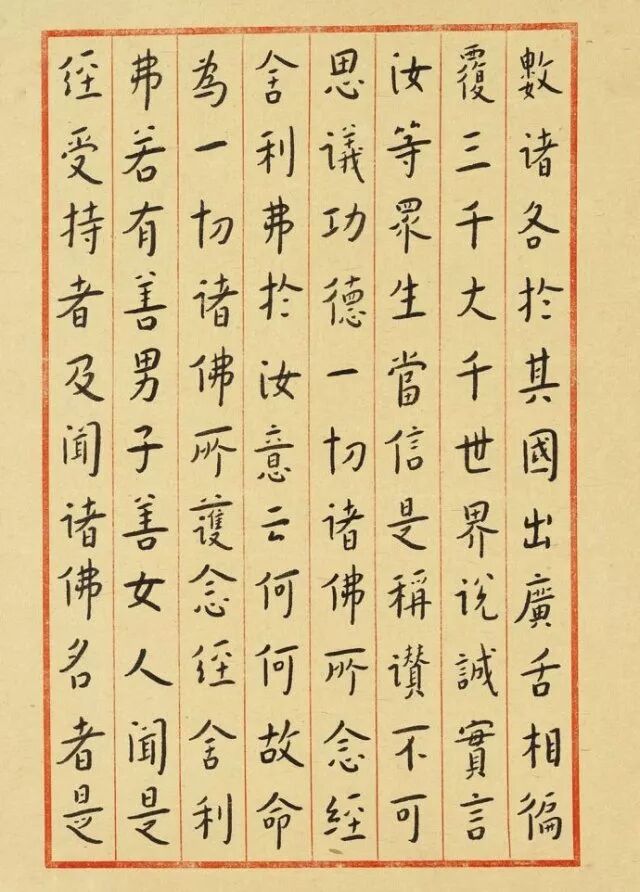 數諸各於其國出廣舌相徧
覆三千大千世界說誠實言
汝等眾生當信是稱讚不可
思議功德一切諸佛所念經
舍利弗於汝意云何何故命
為一切諸佛所護念經舍利
弗若有善男子善女人聞是
經受持者及聞諸佛名者是